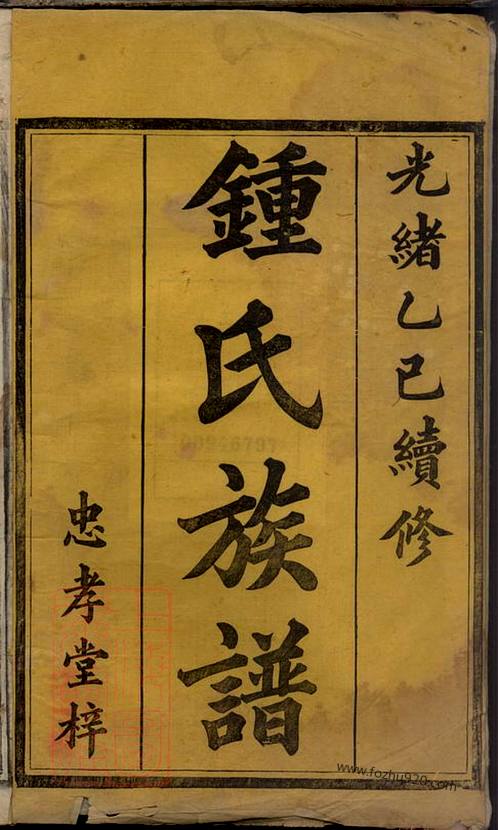 光緒乙巳續修
鍾氏族譜
忠孝堂梓
www.fozhu920.com